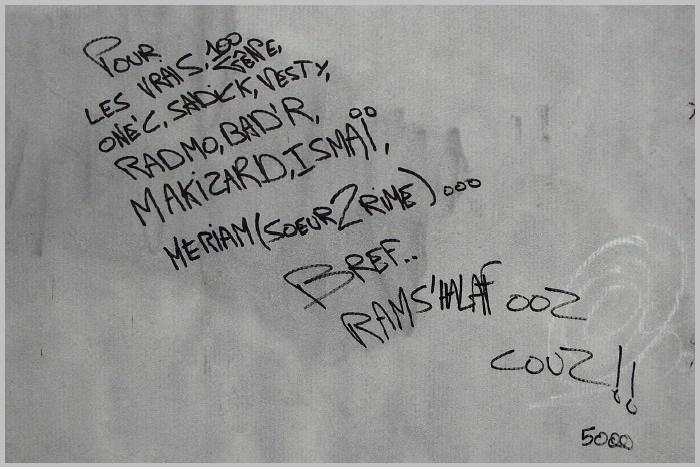 POUR
LES VRAIS, 100 GÊNE,
ONE'C, SADICK, VESTY,
RADMO, BAD'R,
MAKIZARD, ISMAÏ,
MERIAM (SOEUR 2 RIME) ...
BREF..
RAMS'HALAF OOZ
COUZ !!
5000